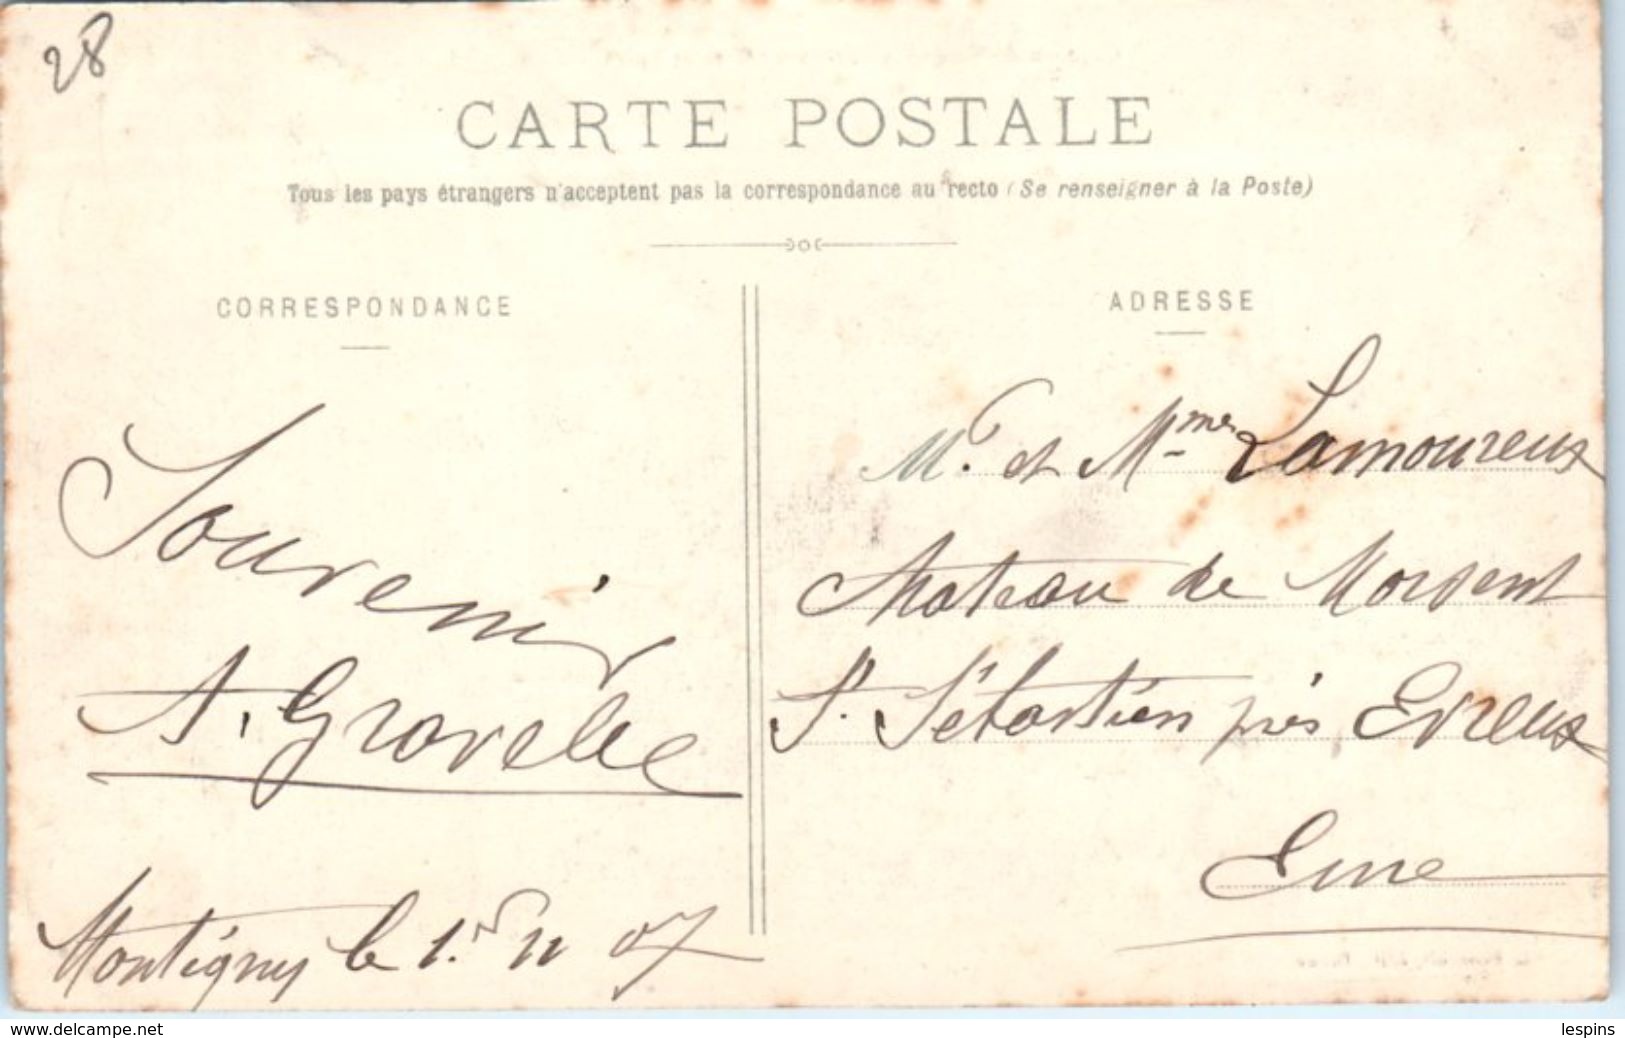 28
CARTE POSTALE
Tous les pays étrangers n'acceptent pas la correspondance au recto (Se renseigner à la Poste)
CORRESPONDANCE
Souvenir
A. Gravelle
Montigny le 1.er 11 07
ADRESSE
Mr. et Mme Lamoureux
Chateau de Morsent
St. Sébastien près Evreux
Eure
www.delcampe.net
lespins